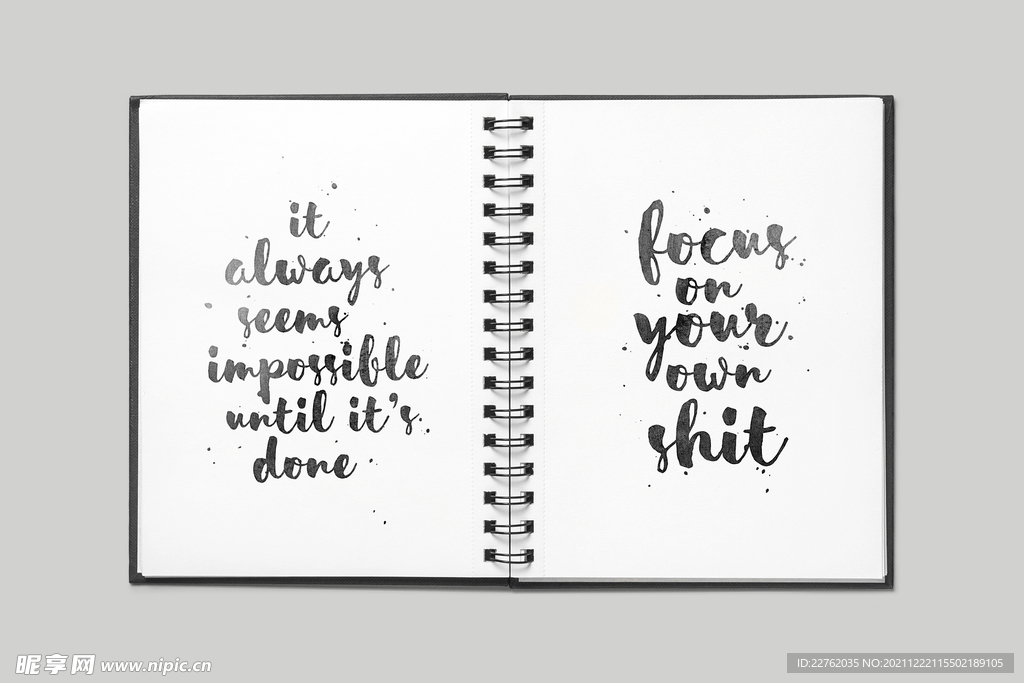 it
always
seems
impossible
until it's
done
focus
on
your
own
shit
昵享网 www.nipic.cn
ID:22762035 NO:20211222115502189105